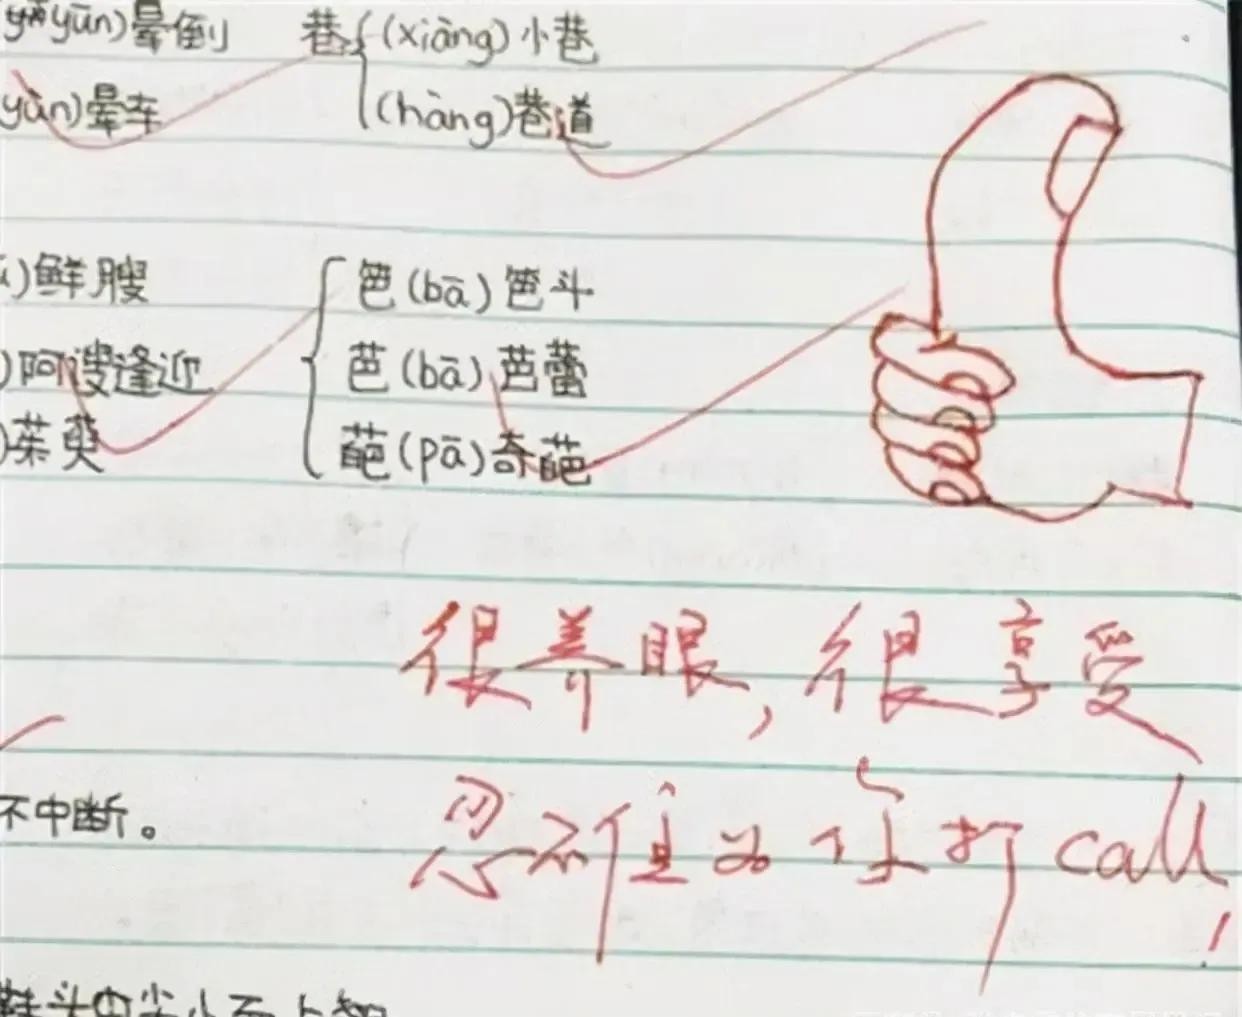 yūn)晕倒 巷{(xiàng)小巷
yùn)晕车 (hàng)巷道
)鲜膄 笆(bā)笆斗
)阿谀逢迎 芭(bā)芭蕾
)茱萸 葩(pā)奇葩
很养眼,很享受
不中断。
忍不住为你打call!